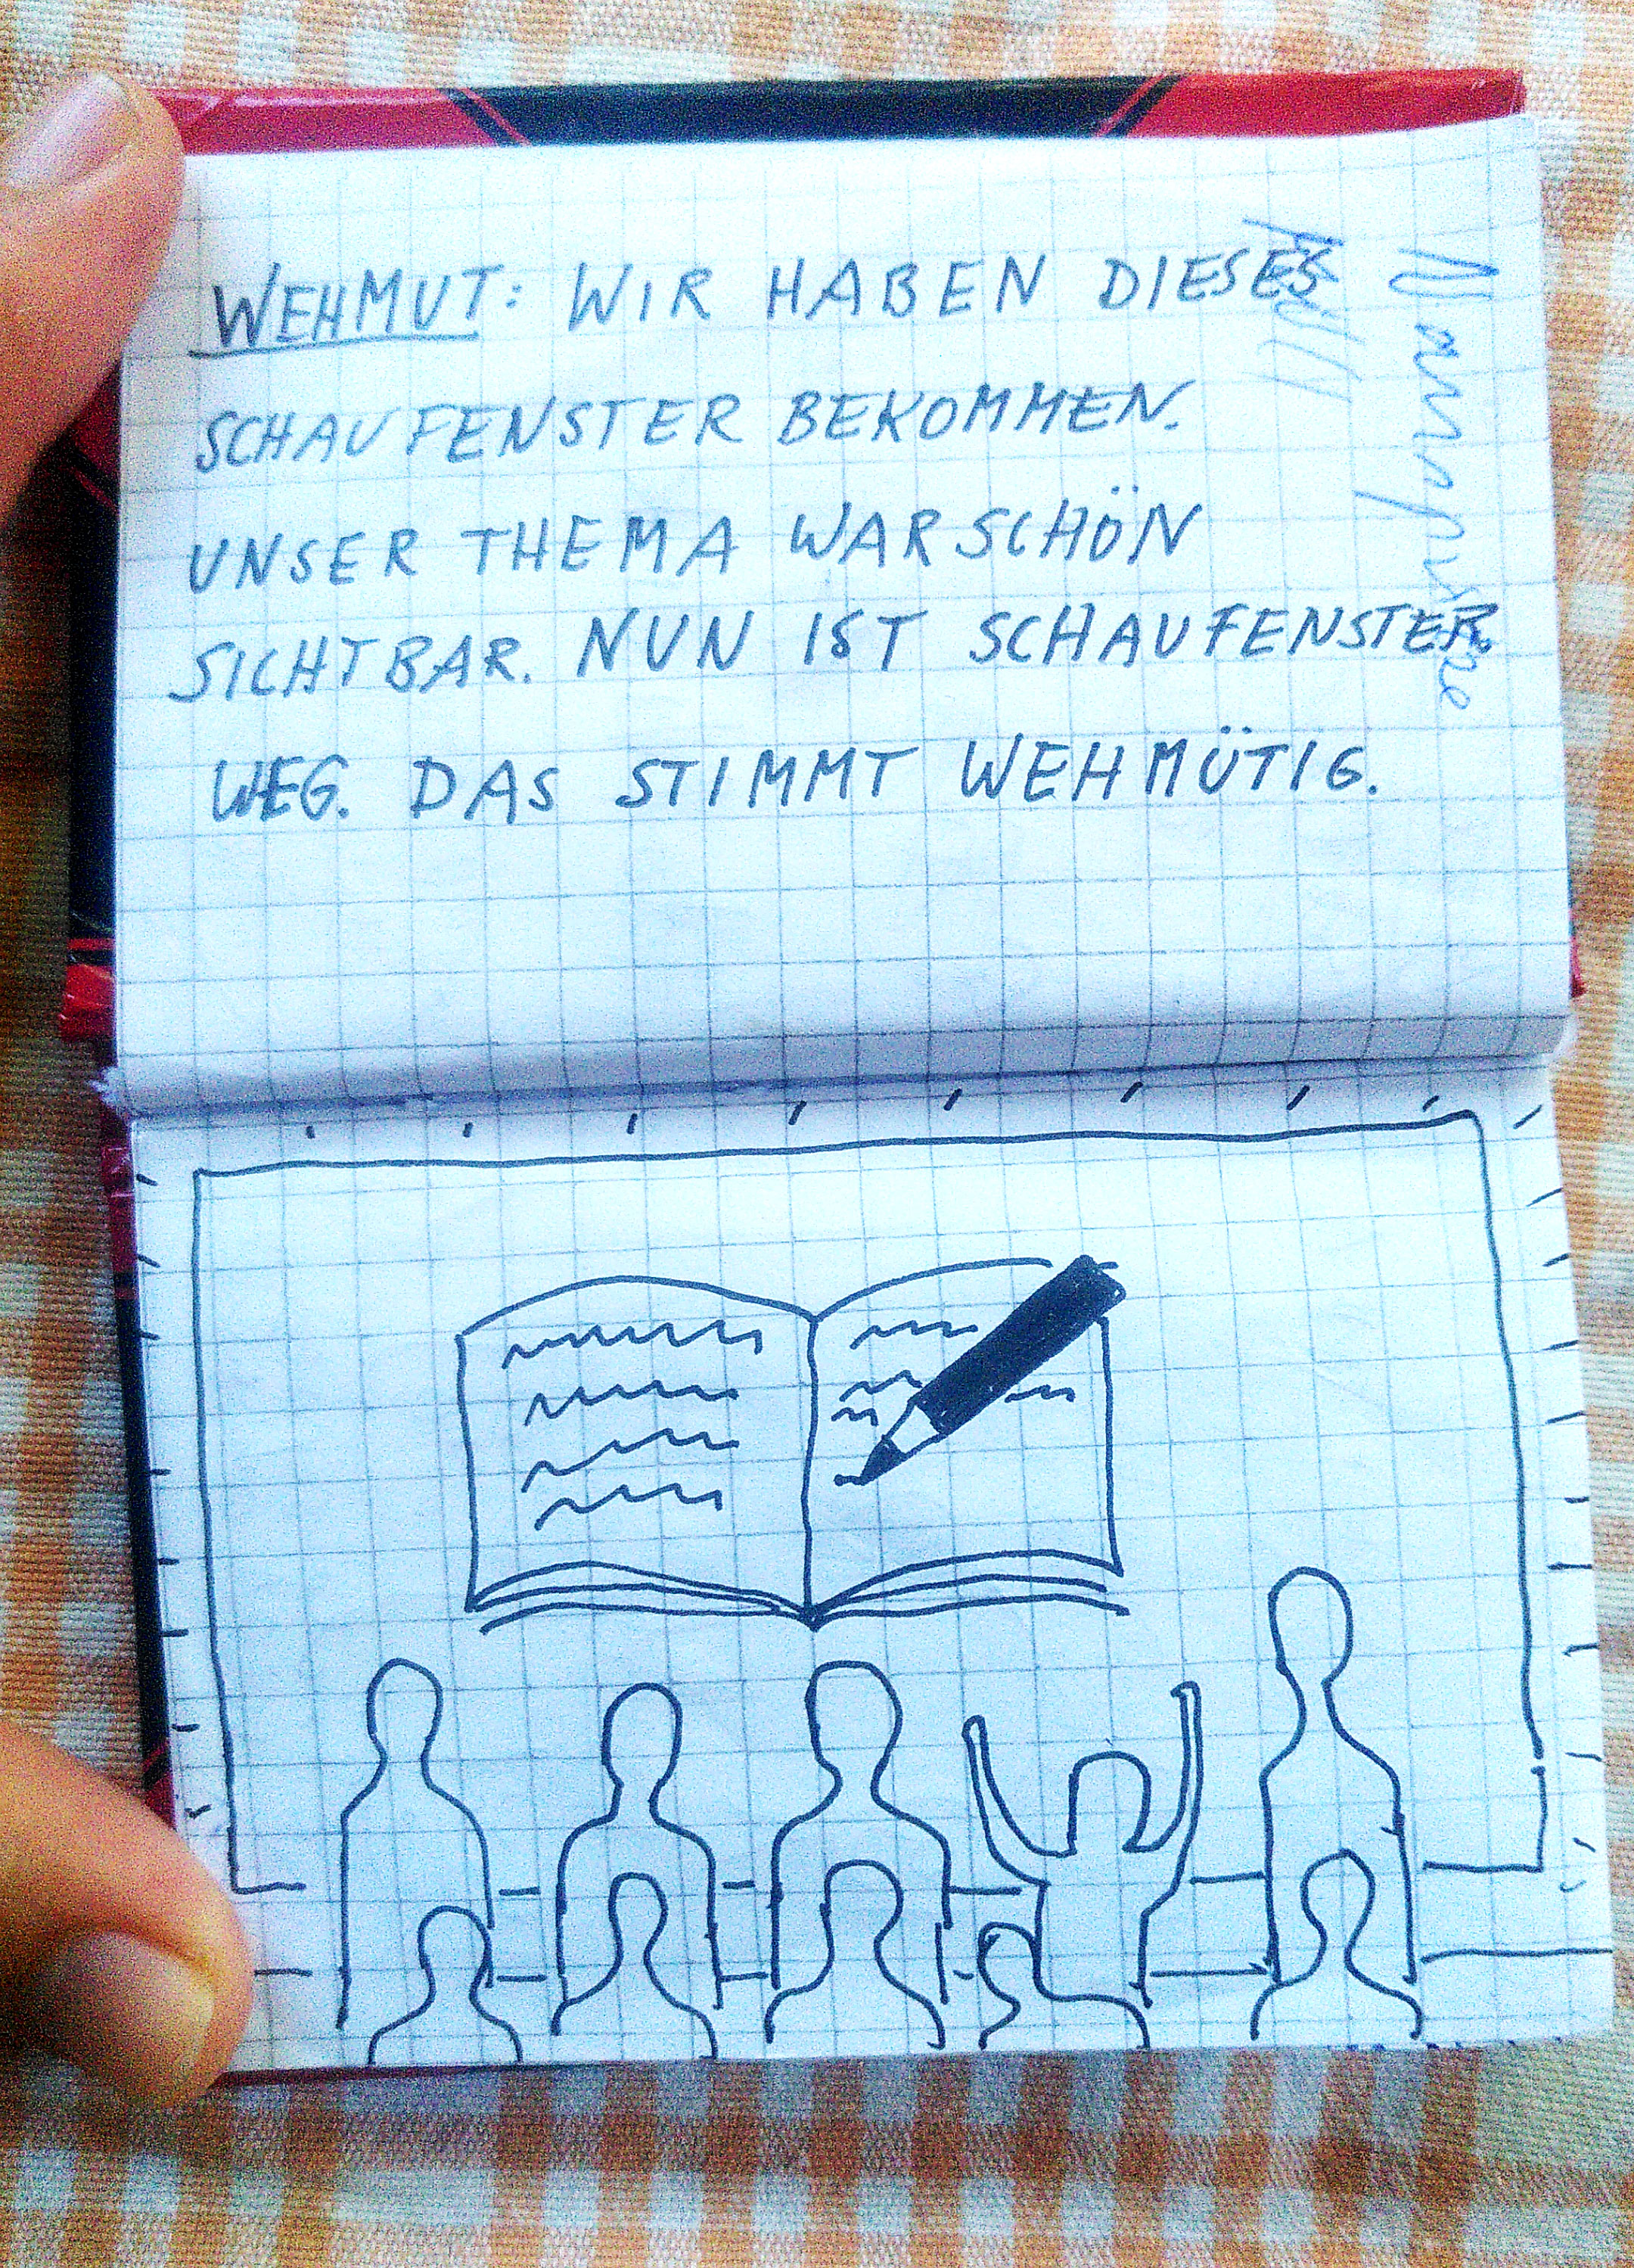 WEHMUT: WIR HABEN DIESES
SCHAUFENSTER BEKOMMEN.
UNSER THEMA WAR SCHÖN
SICHTBAR. NUN IST SCHAUFENSTER
WEG. DAS STIMMT WEHMÜTIG.